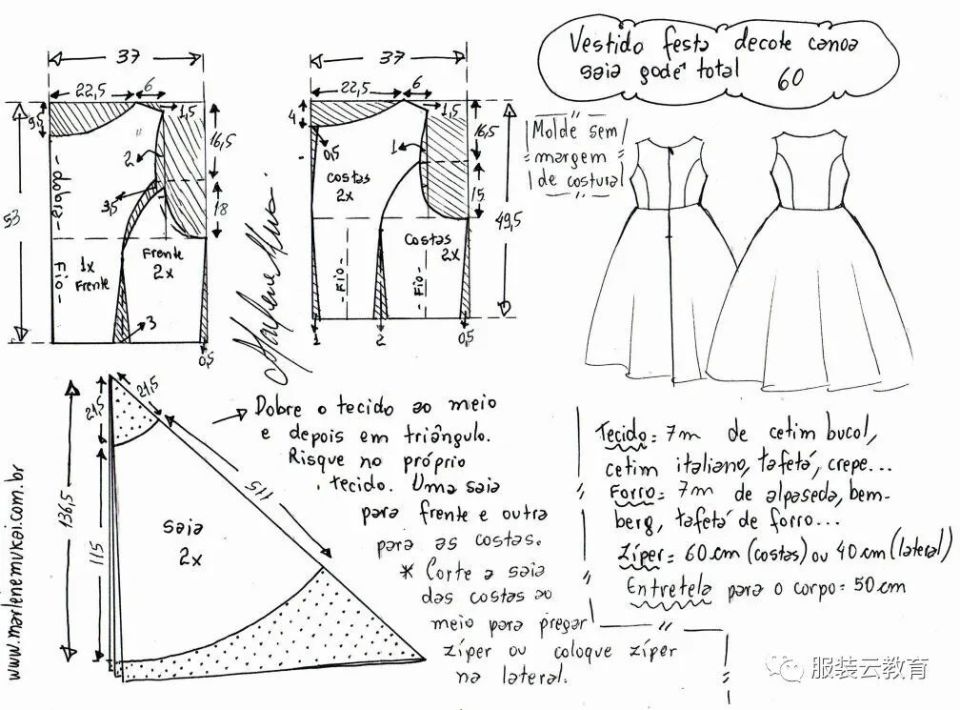 Vestido festa decote canoa
saia godê total 60
37
22,5
6
1,5
9,5
16,5
2
3,5
18
53
- dobra -
Fio -
1x
Frente
Frente
2x
3
0,5
37
22,5
6
1,5
4
0,5
16,5
1
costas
2x
15
49,5
costas
2x
- Fio -
- Fio -
1
2
0,5
Molde sem
margem
de costura
Marlene Mukai
21,5
21,5
136,5
115
115
saia
2x
www.marlenemukai.com.br
Dobre o tecido ao meio
e depois em triângulo.
Risque no próprio
tecido. Uma saia
para frente e outra
para as costas.
* Corte a saia
das costas ao
meio para pregar
zíper ou coloque zíper
na lateral.
Tecido = 7m de cetim bucol,
cetim italiano, tafetá, crepe...
Forro = 7m de alpaseda, bem-
berg, tafetá de forro...
Zíper = 60 cm (costas) ou 40 cm (lateral)
Entretela para o corpo = 50 cm
服装云教育